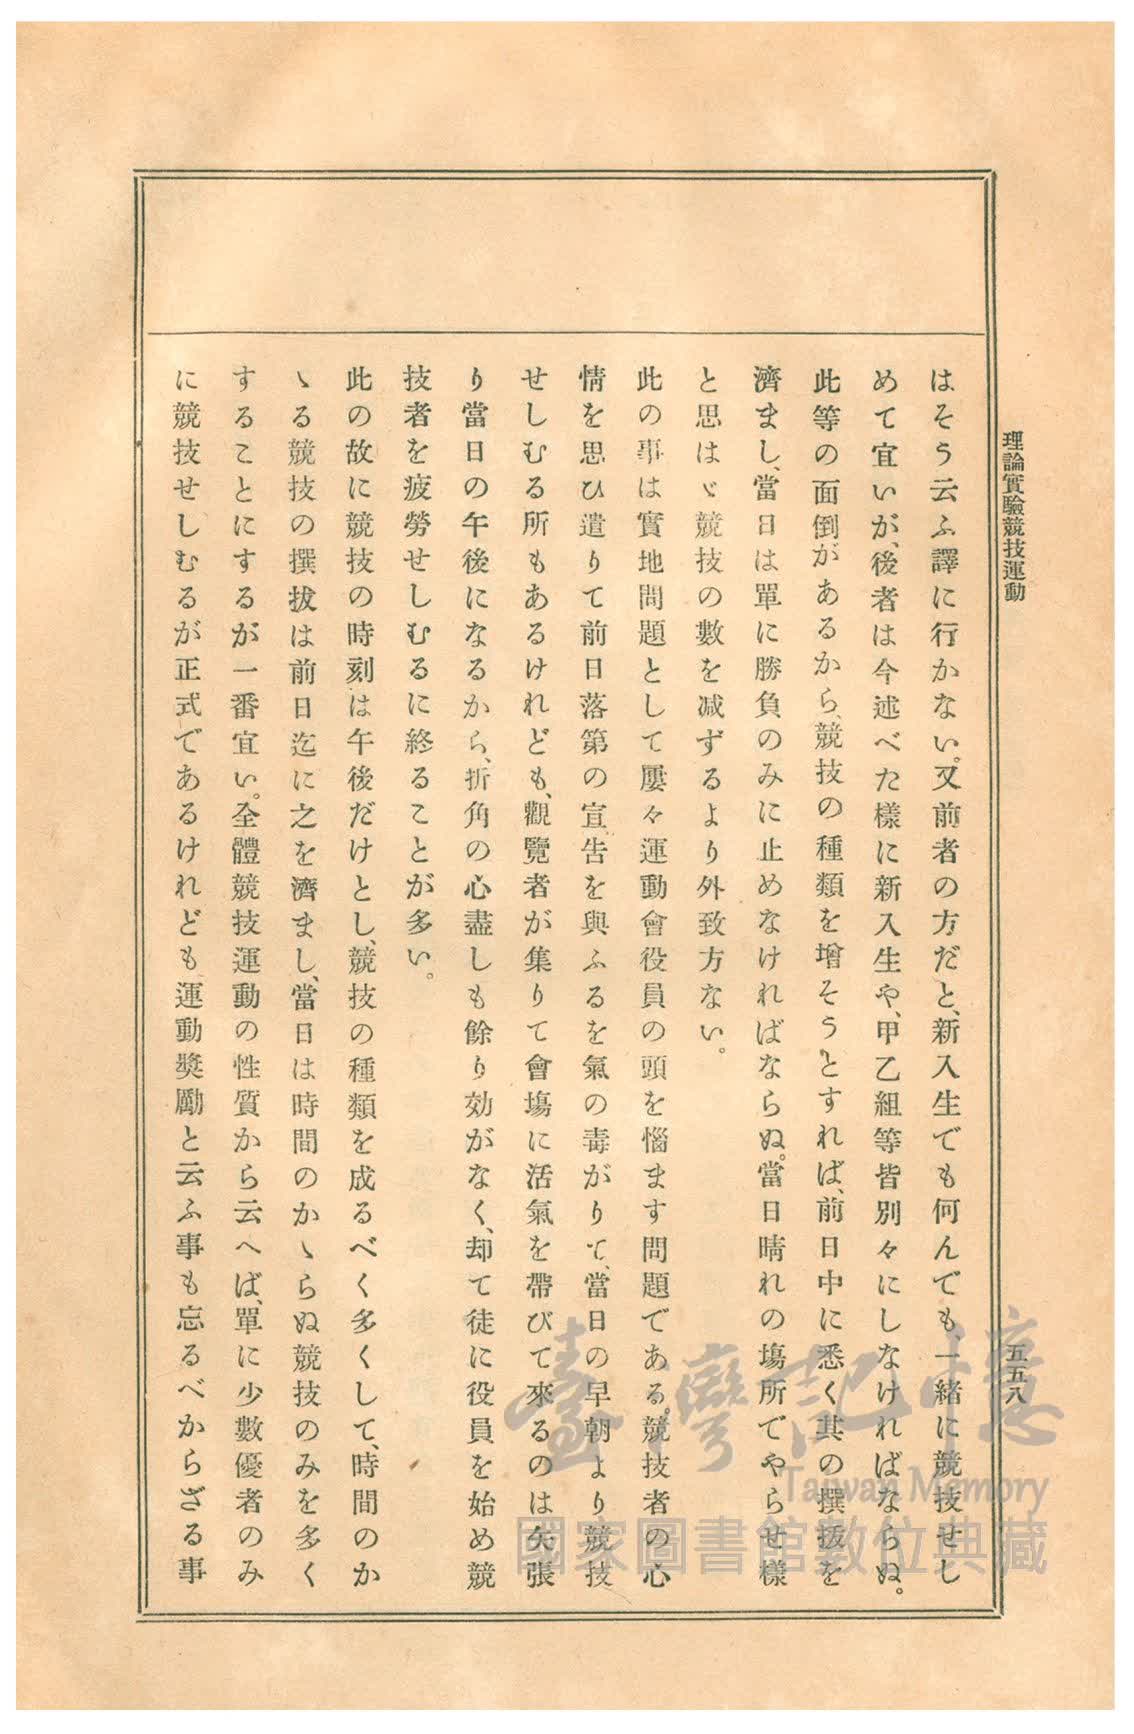 理論實驗競技運動
五五八
はそう云ふ譯に行かない。又前者の方だと、新入生でも何んでも、一緒に競技せし
めて宜いが、後者は今述べた樣に新入生や、甲乙組等皆別々にしなければならぬ。
此等の面倒があるから、競技の種類を增そうとすれば、前日中に悉く其の撰拔を
濟まし、當日は單に勝負のみに止めなければならぬ。當日晴れの塲所でやらせ樣
と思はゞ競技の數を减ずるより外致方ない。
此の事は實地問題として屢々運動會役員の頭を惱ます問題である。競技者の心
情を思ひ遣りて前日落第の宣告を與ふるを氣の毒がりて、當日の早朝より競技
せしむる所もあるけれども、觀覽者が集りて會塲に活氣を帶びて來るのは矢張
り當日の午後になるから、折角の心盡しも餘り効がなく、却て徒に役員を始め競
技者を疲勞せしむるに終ることが多い。
此の故に競技の時刻は午後だけとし、競技の種類を成るべく多くして、時間のか
ゝる競技の撰拔は前日迄に之を濟まし、當日は時間のかゝらぬ競技のみを多く
することにするが一番宜い。全體競技運動の性質から云へば、單に少數優者のみ
に競技せしむるが正式であるけれども、運動奬勵と云ふ事も忘るべからざる事
臺灣記憶
Taiwan Memory
國家圖書館數位典藏